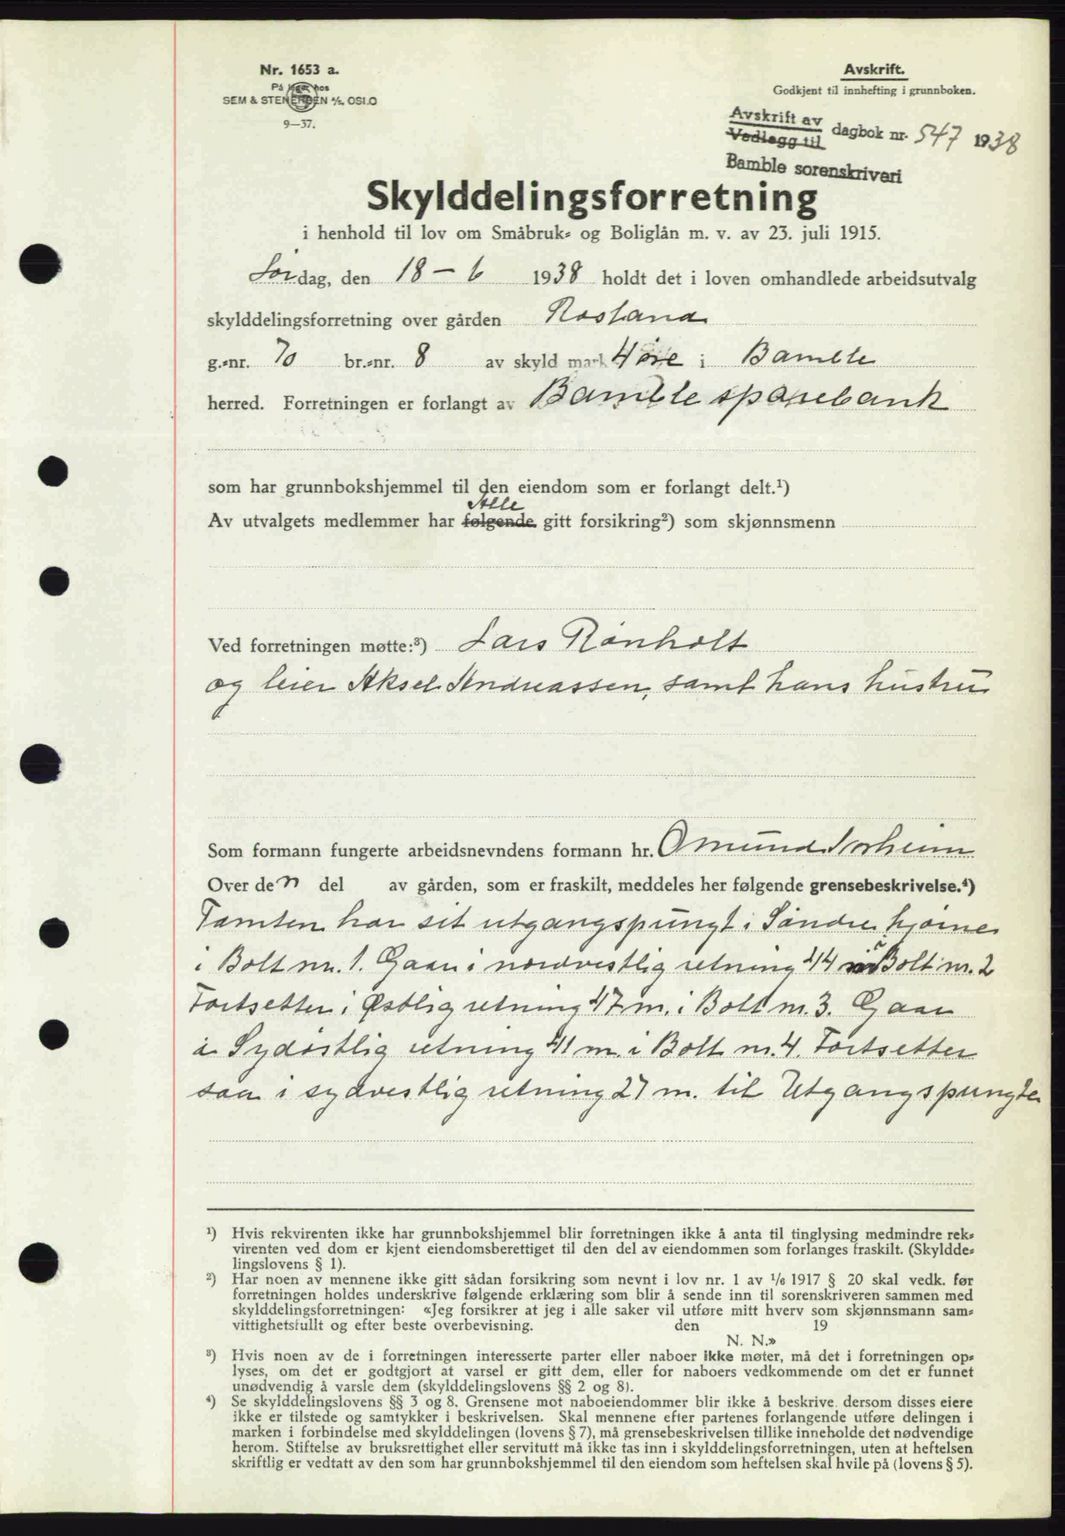 Nr. 1653 a.
På lager hos
SEM & STENERSEN A/S, OSLO
9—37.
Avskrift.
Godkjent til innhefting i grunnboken.
Avskrift av
Vedlegg til
dagbok nr. 547 1938
Bamble sorenskriveri
Skylddelingsforretning
i henhold til lov om Småbruk- og Boliglån m. v. av 23. juli 1915.
Lördag, den 18 – 6 1938 holdt det i loven omhandlede arbeidsutvalg
skylddelingsforretning over gården Rosland
g.-nr. 70 br.-nr. 8 av skyld mark 4 øre i Bamble
herred. Forretningen er forlangt av Bamble sparebank
som har grunnbokshjemmel til den eiendom som er forlangt delt.¹)
Alle
Av utvalgets medlemmer har følgende gitt forsikring²) som skjønnsmenn
Ved forretningen møtte:³) Lars Rönholt
og leier Aksel Andreassen, samt hans hustru
Som formann fungerte arbeidsnevndens formann hr. Omund
Over den del av gården, som er fraskilt, meddeles her følgende grensebeskrivelse.⁴)
Tomten har sit utgangspungt i Söndre hjörne
i Bolt nr. 1. Gaar i nordvestlig retning 44 m i Bolt nr. 2
Fortsetter i Østlig retning 47 m. i Bolt nr. 3. Gaar
i Sydöstlig retning 41 m. i Bolt nr. 4. Fortsetter
saa i sydvestlig retning 27 m. til Utgangspungtet
¹) Hvis rekvirenten ikke har grunnbokshjemmel blir forretningen ikke å anta til tinglysing medmindre rek-
virenten ved dom er kjent eiendomsberettiget til den del av eiendommen som forlanges fraskilt. (Skyldde-
lingslovens § 1).
²) Har noen av mennene ikke gitt sådan forsikring som nevnt i lov nr. 1 av ¹/₆ 1917 § 20 skal vedk. før
forretningen holdes underskrive følgende erklæring som blir å sende inn til sorenskriveren sammen med
skylddelingsforretningen: «Jeg forsikrer at jeg i alle saker vil utføre mitt hverv som skjønnsmann sam-
vittighetsfullt og efter beste overbevisning. den 19
N. N.»
³) Hvis noen av de i forretningen interesserte parter eller naboer ikke møter, må det i forretningen op-
lyses, om det er godtgjort at varsel er gitt dem, eller for naboers vedkommende om det er funnet
unødvendig å varsle dem (skylddelingslovens §§ 2 og 8).
⁴) Se skylddelingslovens §§ 3 og 8. Grensene mot naboeiendommer blir ikke å beskrive, dersom disses eiere
ikke er tilstede og samtykker i beskrivelsen. Skal mennene efter partenes forlangende utføre delingen i
marken i forbindelse med skylddelingen (lovens § 7), må grensebeskrivelsen tillike inneholde det nødvendige
herom. Stiftelse av bruksrettighet eller servitutt må ikke tas inn i skylddelingsforretningen, uten at heftelsen
skriftlig er vedtatt av den som har grunnbokshjemmel til den eiendom som heftelsen skal hvile på (lovens § 5).